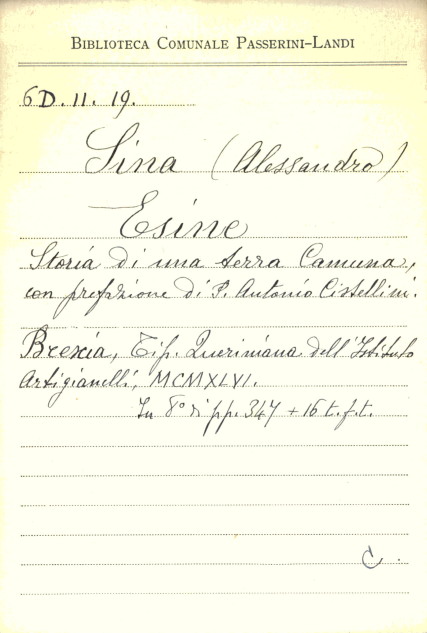 BIBLIOTECA COMUNALE PASSERINI-LANDI
6D. 11. 19.
Sina (Alessandro)
Esine
Storia di una terra Camuna,
con prefazione di P. Antonio Cistellini.
Brescia, Tip. Queriniana dell'Istituto
Artigianelli, MCMXLVI.
In 8° di pp. 347 + 16 t.f.t.
C.